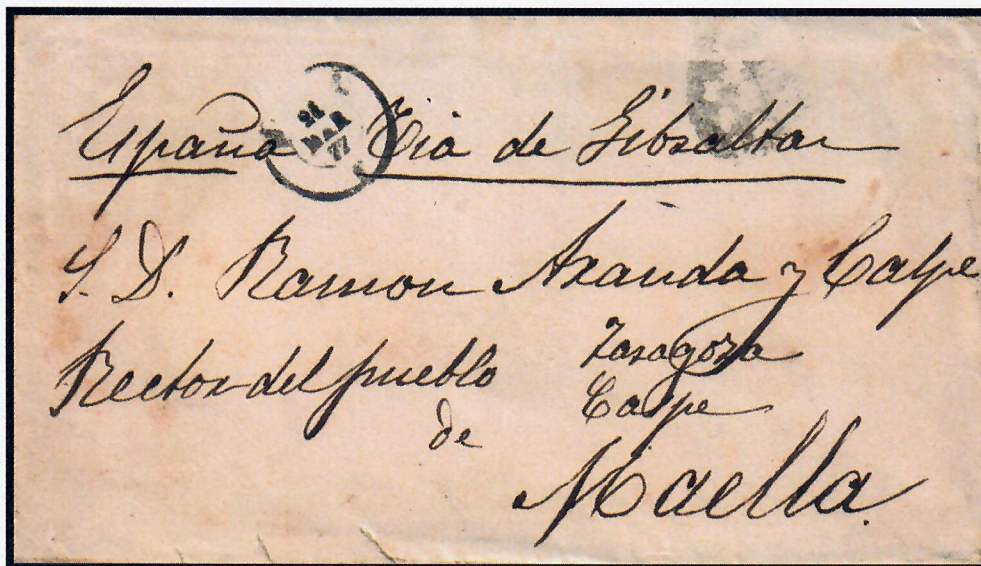 España Via de Gibraltar
21
MAR
77
S. D. Ramon Aranda y Calpe
Rector del pueblo
de
Zaragoza
Caspe
Maella.